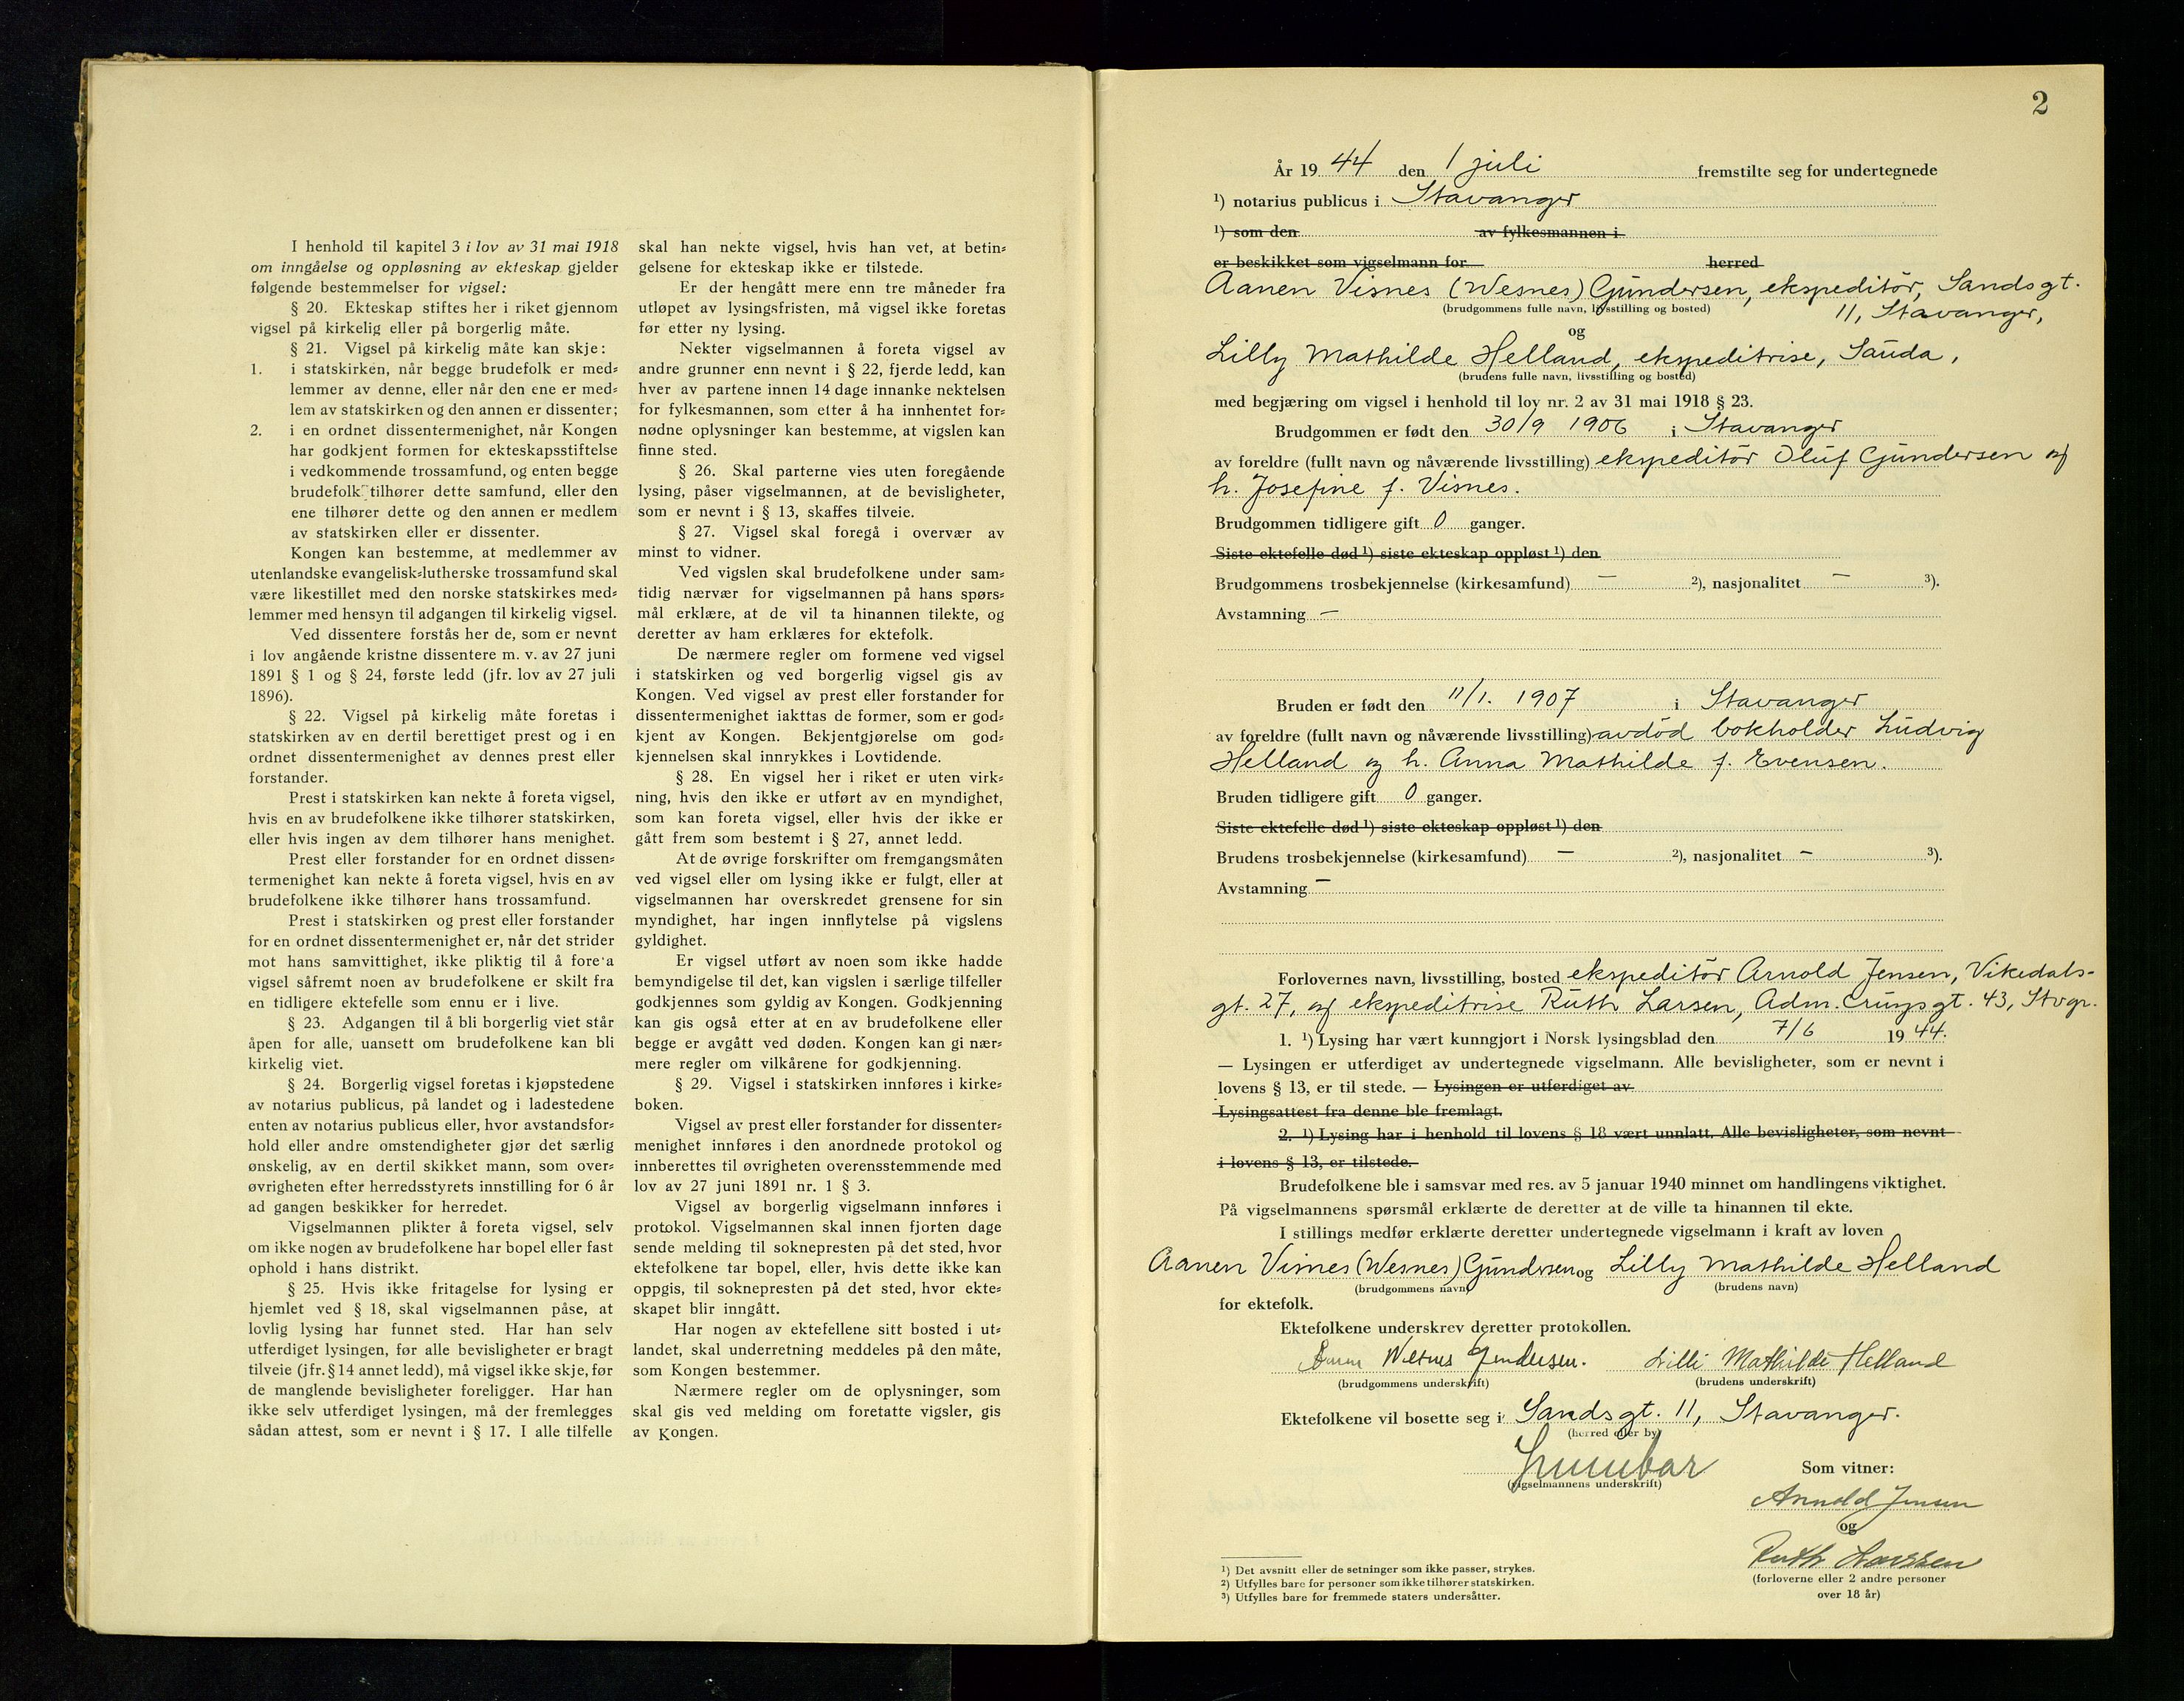 I henhold til kapitel 3 i lov av 31 mai 1918
om inngåelse og oppløsning av ekteskap gjelder
følgende bestemmelser for vigsel:
§ 20. Ekteskap stiftes her i riket gjennom
vigsel på kirkelig eller på borgerlig måte.
§ 21. Vigsel på kirkelig måte kan skje:
1. i statskirken, når begge brudefolk er med=
lemmer av denne, eller når den ene er med=
lem av statskirken og den annen er dissenter;
2. i en ordnet dissentermenighet, når Kongen
har godkjent formen for ekteskapsstiftelse
i vedkommende trossamfund, og enten begge
brudefolk tilhører dette samfund, eller den
ene tilhører dette og den annen er medlem
av statskirken eller er dissenter.
Kongen kan bestemme, at medlemmer av
utenlandske evangelisk=lutherske trossamfund skal
være likestillet med den norske statskirkes med=
lemmer med hensyn til adgangen til kirkelig vigsel.
Ved dissentere forstås her de, som er nevnt
i lov angående kristne dissentere m. v. av 27 juni
1891 § 1 og § 24, første ledd (jfr. lov av 27 juli
1896).
§ 22. Vigsel på kirkelig måte foretas i
statskirken av en dertil berettiget prest og i en
ordnet dissentermenighet av dennes prest eller
forstander.
Prest i statskirken kan nekte å foreta vigsel,
hvis en av brudefolkene ikke tilhører statskirken,
eller hvis ingen av dem tilhører hans menighet.
Prest eller forstander for en ordnet dissen=
termenighet kan nekte å foreta vigsel, hvis en av
brudefolkene ikke tilhører hans trossamfund.
Prest i statskirken og prest eller forstander
for en ordnet dissentermenighet er, når det strider
mot hans samvittighet, ikke pliktig til å fore'a
vigsel såfremt noen av brudefolkene er skilt fra
en tidligere ektefelle som ennu er i live.
§ 23. Adgangen til å bli borgerlig viet står
åpen for alle, uansett om brudefolkene kan bli
kirkelig viet.
§ 24. Borgerlig vigsel foretas i kjøpstedene
av notarius publicus, på landet og i ladestedene
enten av notarius publicus eller, hvor avstandsfor=
hold eller andre omstendigheter gjør det særlig
ønskelig, av en dertil skikket mann, som over=
øvrigheten efter herredsstyrets innstilling for 6 år
ad gangen beskikker for herredet.
Vigselmannen plikter å foreta vigsel, selv
om ikke nogen av brudefolkene har bopel eller fast
ophold i hans distrikt.
§ 25. Hvis ikke fritagelse for lysing er
hjemlet ved § 18, skal vigselmannen påse, at
lovlig lysing har funnet sted. Har han selv
utferdiget lysingen, før alle bevisligheter er bragt
tilveie (jfr. § 14 annet ledd), må vigsel ikke skje, før
de manglende bevisligheter foreligger. Har han
ikke selv utferdiget lysingen, må der fremlegges
sådan attest, som er nevnt i § 17. I alle tilfelle
skal han nekte vigsel, hvis han vet, at betin=
gelsene for ekteskap ikke er tilstede.
Er der hengått mere enn tre måneder fra
utløpet av lysingsfristen, må vigsel ikke foretas
før etter ny lysing.
Nekter vigselmannen å foreta vigsel av
andre grunner enn nevnt i § 22, fjerde ledd, kan
hver av partene innen 14 dage innanke nektelsen
for fylkesmannen, som etter å ha innhentet for=
nødne oplysninger kan bestemme, at vigslen kan
finne sted.
§ 26. Skal parterne vies uten foregående
lysing, påser vigselmannen, at de bevisligheter,
som er nevnt i § 13, skaffes tilveie.
§ 27. Vigsel skal foregå i overvær av
minst to vidner.
Ved vigslen skal brudefolkene under sam=
tidig nærvær for vigselmannen på hans spørs=
mål erklære, at de vil ta hinannen tilekte, og
deretter av ham erklæres for ektefolk.
De nærmere regler om formene ved vigsel
i statskirken og ved borgerlig vigsel gis av
Kongen. Ved vigsel av prest eller forstander for
dissentermenighet iakttas de former, som er god=
kjent av Kongen. Bekjentgjørelse om god=
kjennelsen skal innrykkes i Lovtidende.
§ 28. En vigsel her i riket er uten virk=
ning, hvis den ikke er utført av en myndighet,
som kan foreta vigsel, eller hvis der ikke er
gått frem som bestemt i § 27, annet ledd.
At de øvrige forskrifter om fremgangsmåten
ved vigsel eller om lysing ikke er fulgt, eller at
vigselmannen har overskredet grensene for sin
myndighet, har ingen innflytelse på vigslens
gyldighet.
Er vigsel utført av noen som ikke hadde
bemyndigelse til det, kan vigslen i særlige tilfeller
godkjennes som gyldig av Kongen. Godkjenning
kan gis også etter at en av brudefolkene eller
begge er avgått ved døden. Kongen kan gi nær=
mere regler om vilkårene for godkjenning.
§ 29. Vigsel i statskirken innføres i kirke=
boken.
Vigsel av prest eller forstander for dissenter=
menighet innføres i den anordnede protokol og
innberettes til øvrigheten overensstemmende med
lov av 27 juni 1891 nr. 1 § 3.
Vigsel av borgerlig vigselmann innføres i
protokol. Vigselmannen skal innen fjorten dage
sende melding til sokneprésten på det sted, hvor
ektefolkene tar bopel, eller, hvis dette ikke kan
oppgis, til soknepresten på det sted, hvor ekte=
skapet blir inngått.
Har nogen av ektefellene sitt bosted i ut=
landet, skal underretning meddeles på den måte,
som Kongen bestemmer.
Nærmere regler om de oplysninger, som
skal gis ved melding om foretatte vigsler, gis
av Kongen.
2
År 1944 den 1 juli fremstilte seg for undertegnede
¹) notarius publicus i Stavanger
¹) som den av fylkesmannen i
er beskikket som vigselmann for herred
Aanen Visnes (Wesnes) Gundersen, ekspeditör, Sandsgt.
(brudgommens fulle navn, livsstilling og bosted) 11, Stavanger,
og
Lilly Mathilde Helland, ekspeditrise, Sauda,
(brudens fulle navn, livsstilling og bosted)
med begjæring om vigsel i henhold til lov nr. 2 av 31 mai 1918 § 23.
Brudgommen er født den 30/9 1906 i Stavanger
av foreldre (fullt navn og nåværende livsstilling) ekspeditör Oluf Gundersen og
h. Josefine f. Visnes.
Brudgommen tidligere gift 0 ganger.
Siste ektefelle død ¹) siste ekteskap oppløst ¹) den
Brudgommens trosbekjennelse (kirkesamfund) — ²), nasjonalitet — ³).
Avstamning —
Bruden er født den 11/1. 1907 i Stavanger
av foreldre (fullt navn og nåværende livsstilling) avdöd bokholder Ludvig
Helland og h. Anna Mathilde f. Evensen.
Bruden tidligere gift 0 ganger.
Siste ektefelle død ¹) siste ekteskap oppløst ¹) den
Brudens trosbekjennelse (kirkesamfund) — ²), nasjonalitet — ³).
Avstamning —
Forlovernes navn, livsstilling, bosted ekspeditör Arnold Jensen, Vikedals-
gt. 27, og ekspeditrise Ruth Larsen, Adm. Cruysgt. 43, Stvgr.
1. ¹) Lysing har vært kunngjort i Norsk lysingsblad den 7/6 1944.
— Lysingen er utferdiget av undertegnede vigselmann. Alle bevisligheter, som er nevnt i
lovens § 13, er til stede. — Lysingen er utferdiget av
Lysingsattest fra denne ble fremlagt.
2. ¹) Lysing har i henhold til lovens § 18 vært unnlatt. Alle bevisligheter, som nevnt
i lovens § 13, er tilstede.
Brudefolkene ble i samsvar med res. av 5 januar 1940 minnet om handlingens viktighet.
På vigselmannens spørsmål erklærte de deretter at de ville ta hinannen til ekte.
I stillings medfør erklærte deretter undertegnede vigselmann i kraft av loven
Aanen Visnes (Wesnes) Gundersen og Lilly Mathilde Helland
(brudgommens navn) (brudens navn)
for ektefolk.
Ektefolkene underskrev deretter protokollen.
Wesnes Gundersen. Lilli Mathilde Helland
(brudgommens underskrift) (brudens underskrift)
Ektefolkene vil bosette seg i Sandsgt. 11, Stavanger.
(herred eller by)
(vigselmannens underskrift)
Som vitner:
Arnold Jensen
og
Ruth Larssen
(forloverne eller 2 andre personer
over 18 år)
¹) Det avsnitt eller de setninger som ikke passer, strykes.
²) Utfylles bare for personer som ikke tilhører statskirken.
³) Utfylles bare for fremmede staters undersåtter.